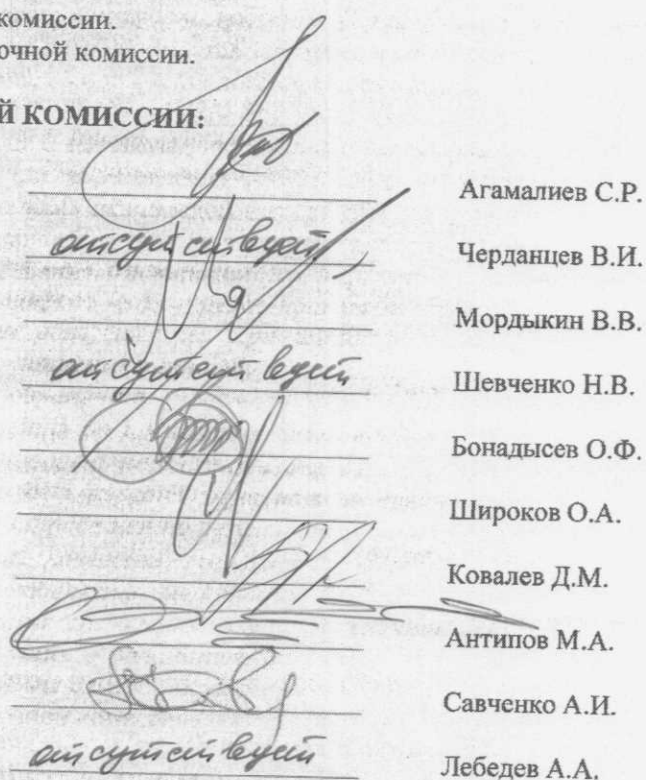 комиссии.
очной комиссии.
Й КОМИССИИ:
Агамалиев С.Р.
отсутствует
Черданцев В.И.
Мордыкин В.В.
отсутствует
Шевченко Н.В.
Бонадысев О.Ф.
Широков О.А.
Ковалев Д.М.
Антипов М.А.
Савченко А.И.
отсутствует
Лебедев А.А.